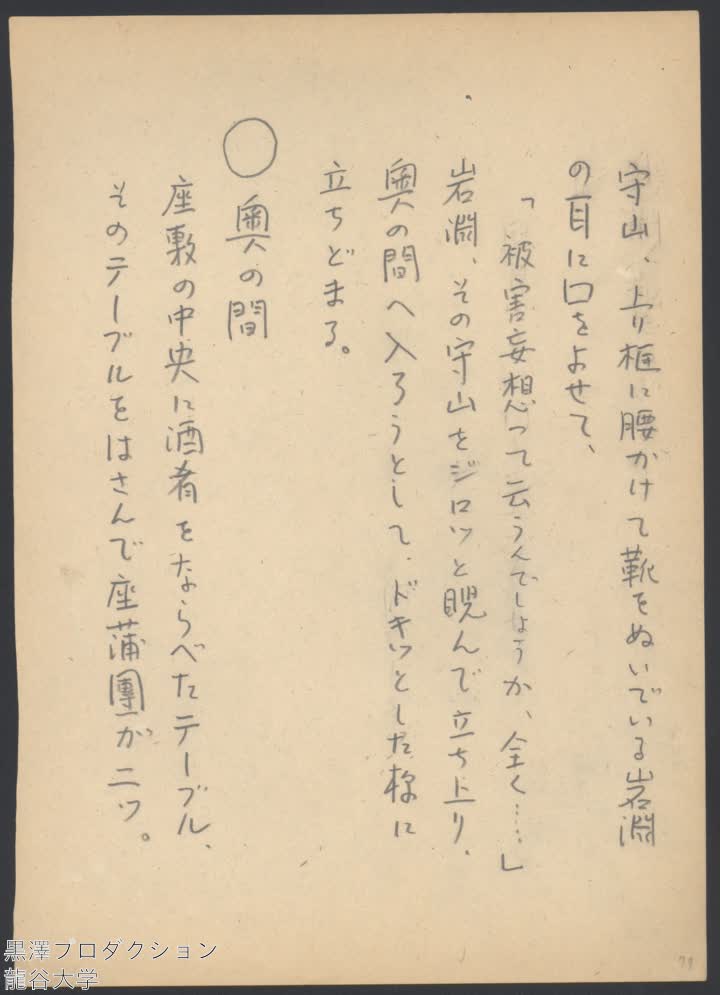 守山、上り框に腰かけて靴をぬいでいる岩淵
の耳に口をよせて、
「被害妄想って云うんでしょうか、全く……」
岩淵、その守山をジロッと睨んで立ち上り、
奥の間へ入ろうとして、ドキッとした様に
立ちどまる。
○奥の間
座敷の中央に酒肴をならべたテーブル、
そのテーブルをはさんで座蒲團が二ツ。
黒澤プロダクション
龍谷大学